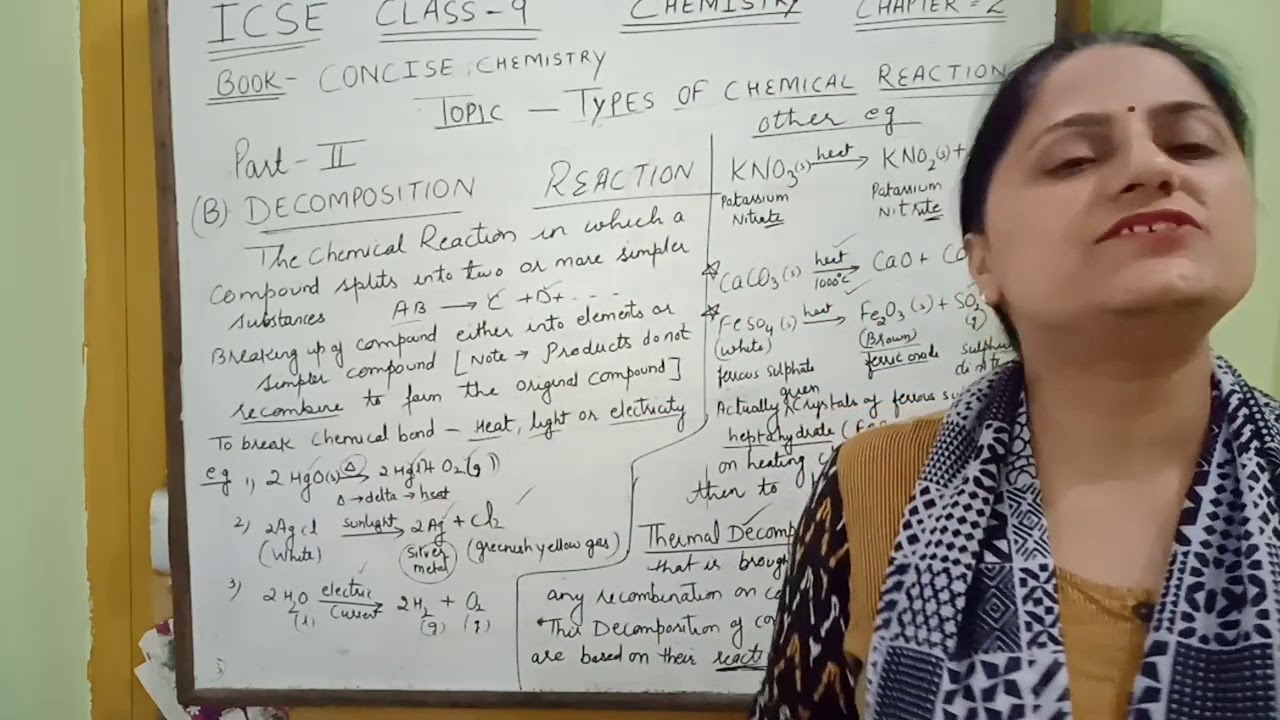 ICSE CLASS-9 CHEMISTRY CHAPTER-2
BOOK- CONCISE CHEMISTRY
TOPIC — TYPES OF CHEMICAL REACTION
Part-II
(B) DECOMPOSITION REACTION
The Chemical Reaction in which a
compound splits into two or more simpler
substances AB → C + D+ - - -
Breaking up of compound either into elements or
simpler compound [Note → Products do not
recombine to form the original compound]
To break chemical bond — Heat, light or electricity
eg 1) 2HgO(s) Δ→ 2Hg(l)+ O2(g)
Δ → delta → heat
2) 2AgCl sunlight→ 2Ag + Cl2
(White) (Silver metal) (greenish yellow gas)
3) 2H2O electric current→ 2H2 + O2
(l) (g) (g)
other eg
KNO3(s) heat→ KNO2(s)+
Patassium Nitrate Patassium Nitrite
CaCO3(s) heat→ CaO +
1000°C
FeSO4(s) heat→ Fe2O3(s) + SO2
(White) (Brown) (g)
ferrous sulphate ferric oxide
green
Actually Crystals of ferrous
heptahydrate
on heating
then to
Thermal
that is
any recombination on
This Decomposition of
are based on their